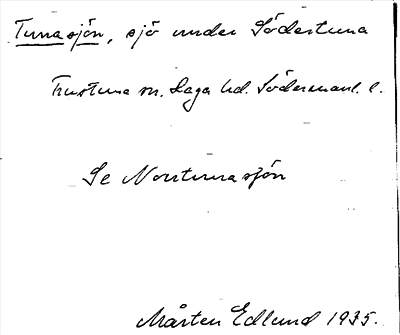 Tunasjön, sjö under Södertuna
Frustuna sn. Daga hd. Södermanl. l.
Se Norrtunasjön
Mårten Edlund 1935.